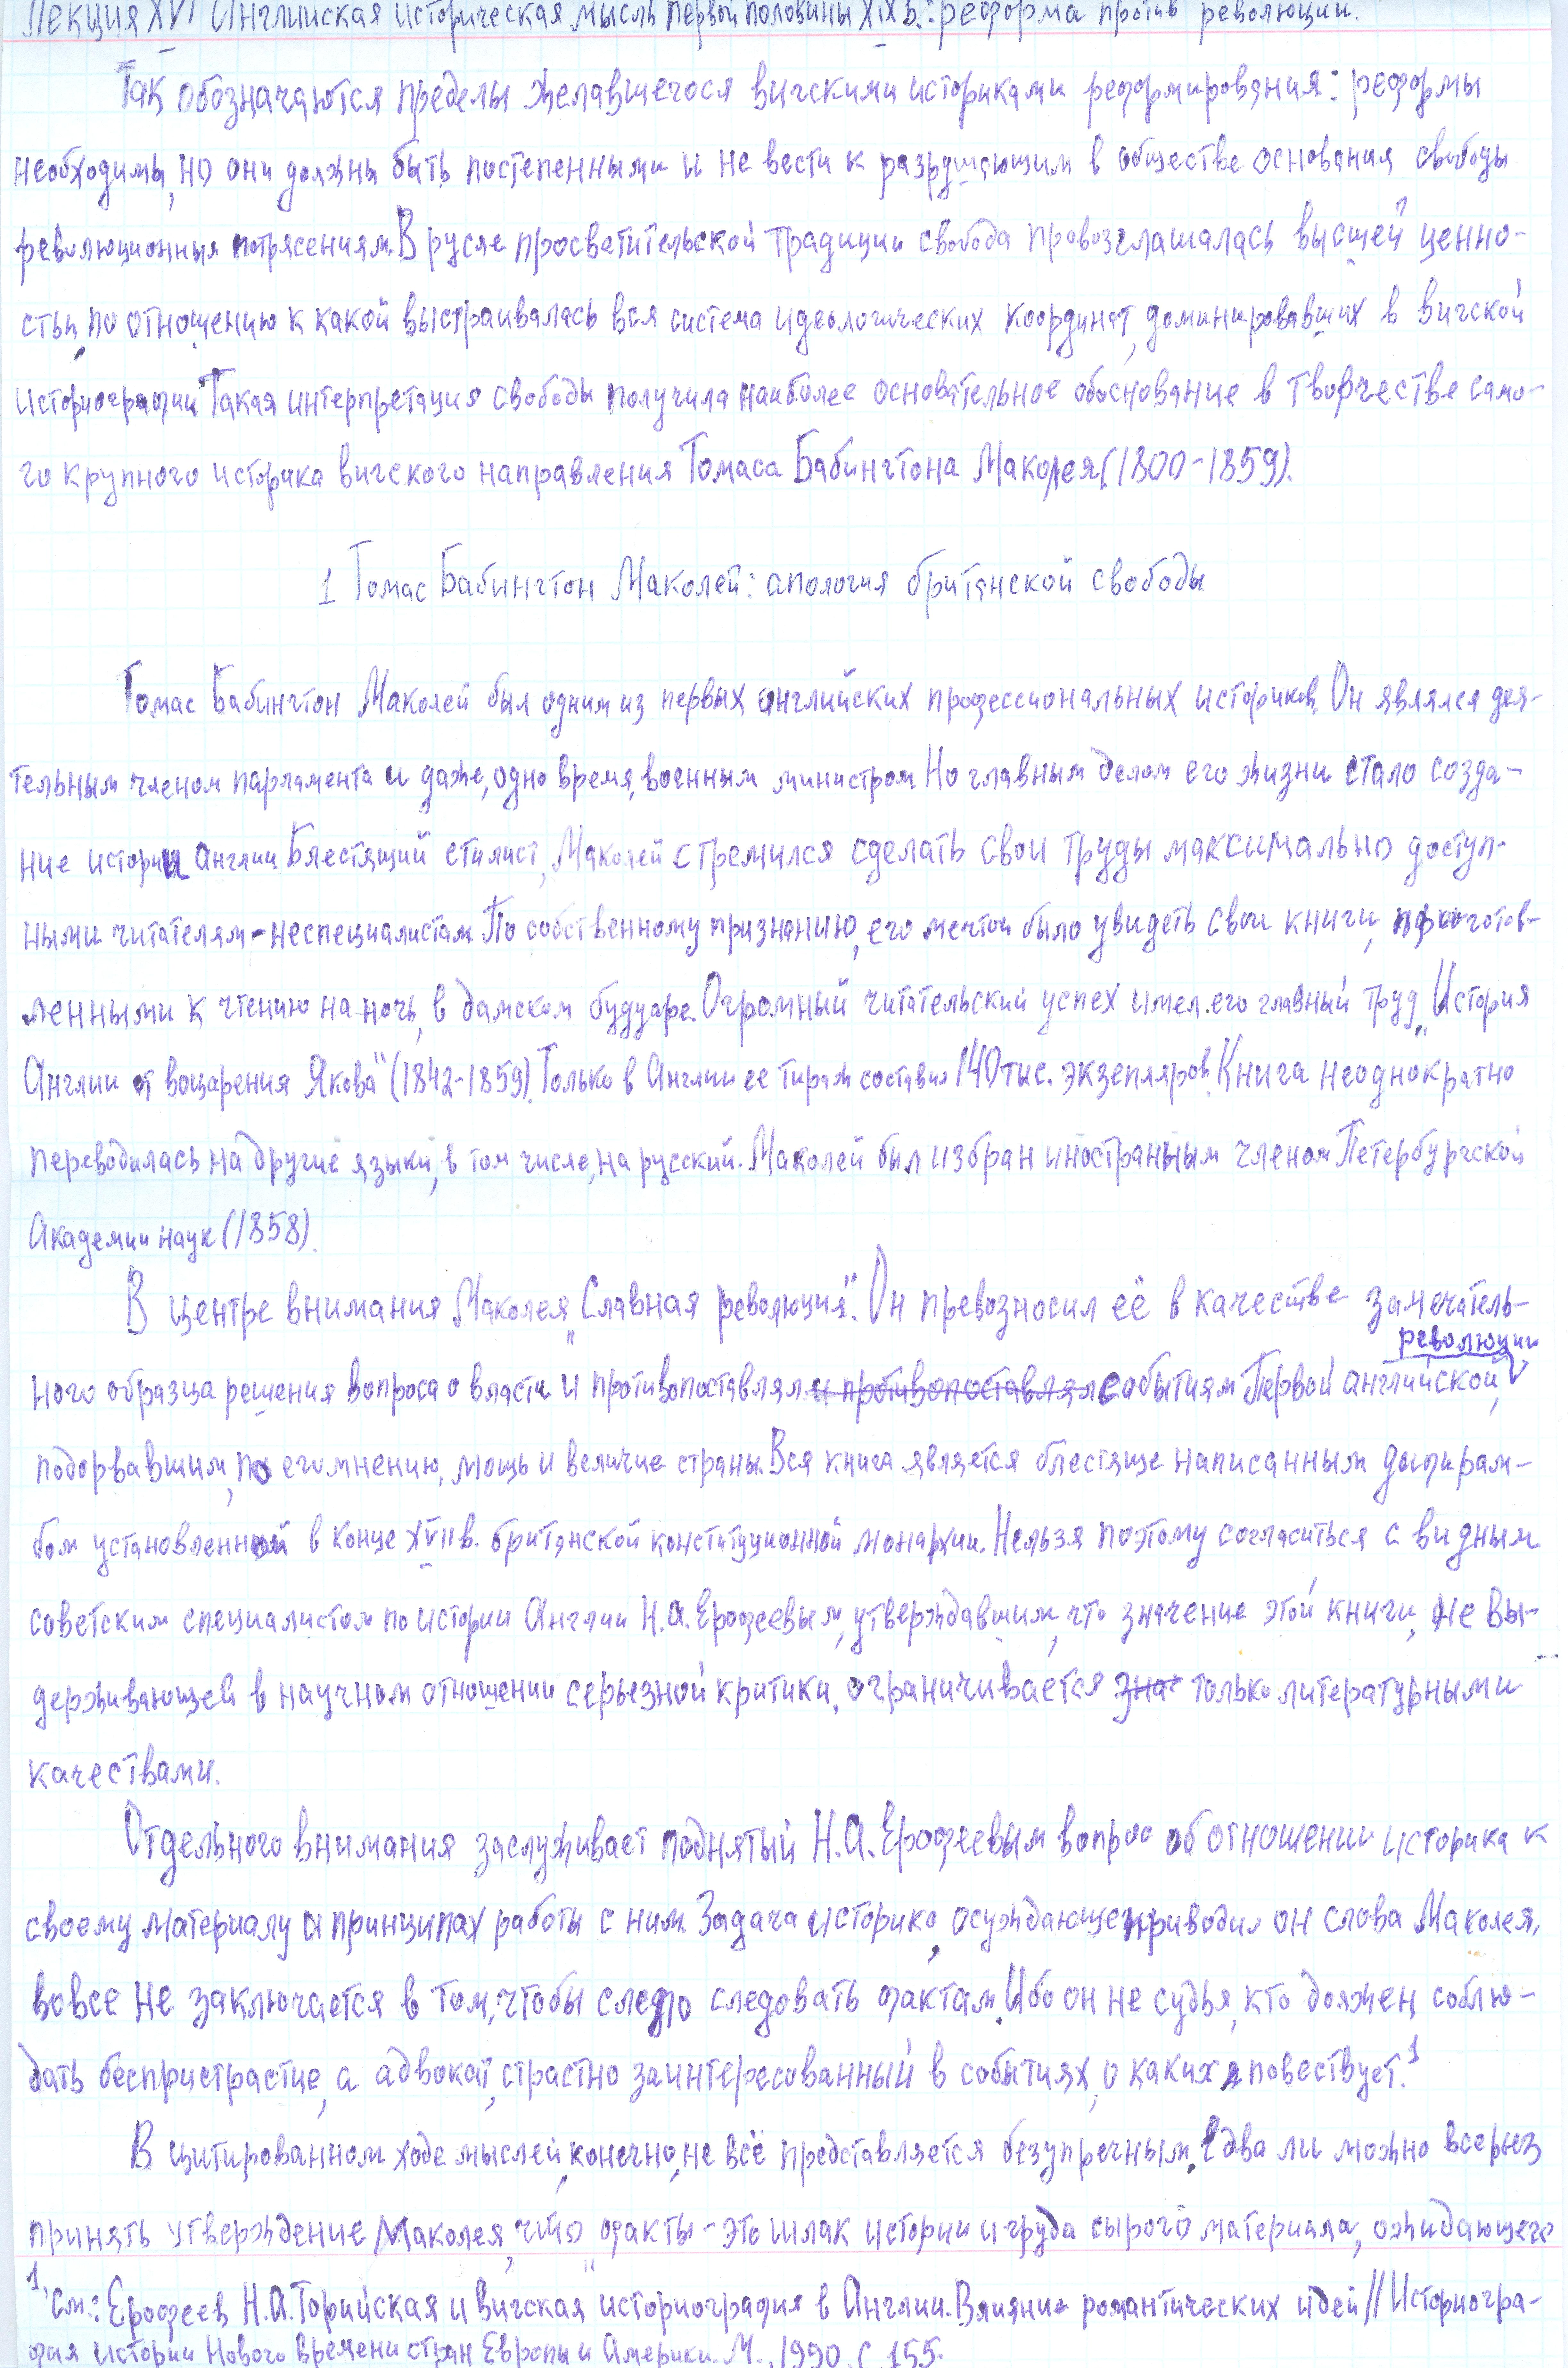 Лекция XVI Английская историческая мысль первой половины XIX в.: реформа против революции.
Так обозначаются пределы желавшегося вигскими историками реформирования: реформы
необходимы, но они должны быть постепенными и не вести к разрушающим в обществе основания свободы
революционным потрясениям. В русле просветительской традиции свобода провозглашалась высшей ценно-
стью, по отношению к какой выстраивалась вся система идеологических координат, доминировавших в вигской
историографии. Такая интерпретация свободы получила наиболее основательное обоснование в творчестве само-
го крупного историка вигского направления Томаса Бабингтона Маколея (1800-1859).
1 Томас Бабингтон Маколей: апология британской свободы
Томас Бабингтон Маколей был одним из первых английских профессиональных историков. Он являлся дея-
тельным членом парламента и даже, одно время, военным министром. Но главным делом его жизни стало созда-
ние истории Англии. Блестящий стилист, Маколей стремился сделать свои труды максимально доступ-
ными читателям-неспециалистам. По собственному признанию, его мечтой было увидеть свои книги, приготов-
ленными к чтению на ночь, в дамском будуаре. Огромный читательский успех имел его главный труд „История
Англии от воцарения Якова" (1842-1859). Только в Англии ее тираж составил 140 тыс. экземпляров. Книга неоднократно
переводилась на другие языки, в том числе, на русский. Маколей был избран иностранным членом Петербургской
Академии наук (1858).
В центре внимания Маколея „Славная революция". Он превозносил её в качестве замечатель-
ного образца решения вопроса о власти и противопоставлял и противопоставлял событиям Первой английской революции,
подорвавшим, по его мнению, мощь и величие страны. Вся книга является блестяще написанным дифирам-
бом установленной в конце XVII в. британской конституционной монархии. Нельзя поэтому согласиться с видным
советским специалистом по истории Англии Н.А. Ерофеевым, утверждавшим, что значение этой книги, не вы-
держивающей в научном отношении серьезной критики, ограничивается зна- только литературными
качествами.
Отдельного внимания заслуживает поднятый Н.А. Ерофеевым вопрос об отношении историка к
своему материалу и принципах работы с ним. Задача историка, осуждающе приводил он слова Маколея,
вовсе не заключается в том, чтобы слепо следовать фактам. Ибо он не судья, кто должен соблю-
дать беспристрастие, а адвокат, страстно заинтересованный в событиях, о каких повествует.¹
В цитированном ходе мыслей, конечно, не всё представляется безупречным. Едва ли можно всерьез
принять утверждение Маколея, что „факты - это шлак истории и груда сырого материала, ожидающего
¹ См.: Ерофеев Н.А. Торийская и „вигская" историография в Англии. Влияние романтических идей // Историогра-
фия истории Нового времени стран Европы и Америки. М., 1990. С. 155.